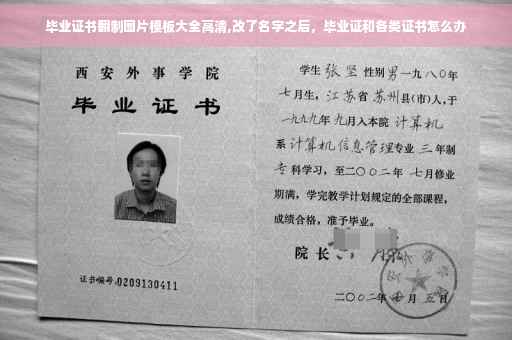 毕业证书翻制图片模板大全高清,改了名字之后，毕业证和各类证书怎么办
西安外事学院
毕业证书
证书编号:0209130411
学生 张坚 性别 男 一九八〇年
七月生，江苏省苏州县(市)人，于
一九九九年九月入本院 计算机
系 计算机信息管理专业 三 年制
专科学习，至二〇〇二年 七月修业
期满，学完教学计划规定的全部课程，
成绩合格，准予毕业。
院长
二〇〇二年 月五日